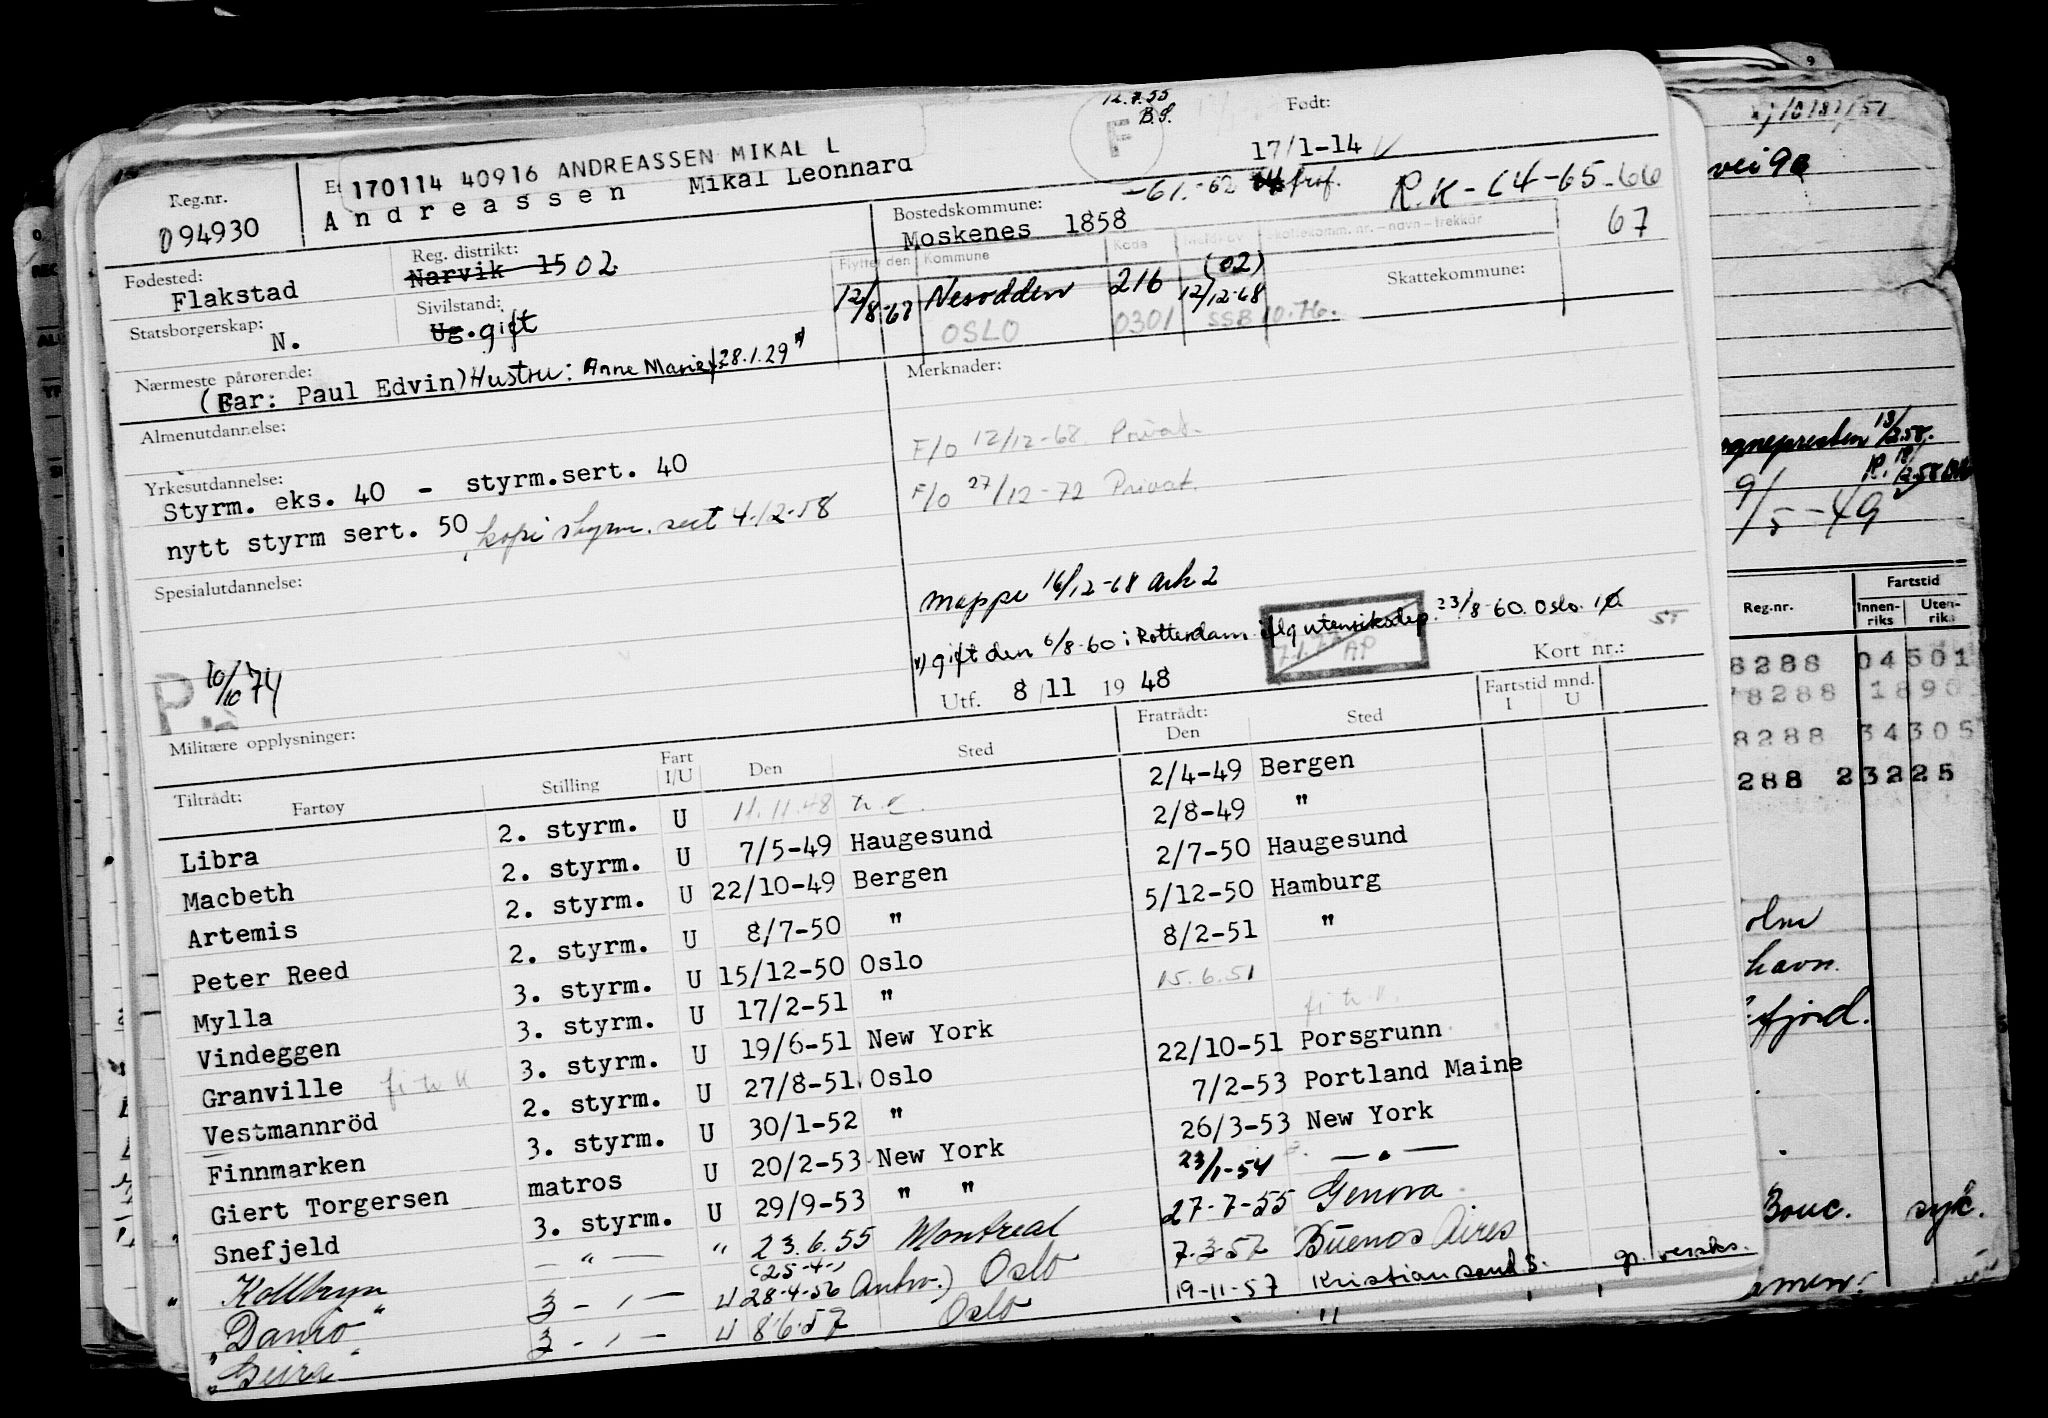 12.7.55
B.S.
F
Født:
17/1-14
Reg.nr.
094930
170114 40916 ANDREASSEN MIKAL L
Andreassen Mikal Leonnard
-61.-62 prof.
R.K-64-65-66
67
Bostedskommune:
Moskenes 1858
Fødested:
Flakstad
Reg. distrikt:
Narvik 15 02
Flyttet den Kommune Kode
Skattekomm. nr. - navn - trekkår
12/8-67 Nesodden 216 (02) 12/12-68
OSLO 0301 SSB 10.76.
Skattekommune:
Statsborgerskap:
N.
Sivilstand:
Ug. gift
Nærmeste pårørende:
(Far: Paul Edvin) Hustru: Anne Marie f. 28.1.29
Merknader:
F/O 12/12-68. Privat.
F/O 27/12-72 Privat.
Almenutdannelse:
Yrkesutdannelse:
Styrm. eks. 40 - styrm.sert. 40
nytt styrm sert. 50, kopi styrm. sert 4.12-58
Spesialutdannelse:
mappe 16/12-68 ark 2
gift den 6/8-60 i Rotterdam iflg utenriksdep. 23/8-60. Oslo.
P. 10/10 74
Utf. 8/11 1948
Kort nr.:
Militære opplysninger:
Tiltrådt:
Fartøy Stilling Fart I/U Den Sted
Fratrådt:
Den Sted
Fartstid mnd.
I U
Libra 2. styrm. U 11.11.48 2/4-49 Bergen
Macbeth 2. styrm. U 7/5-49 Haugesund 2/8-49 "
Artemis 2. styrm. U 22/10-49 Bergen 2/7-50 Haugesund
Peter Reed 2. styrm. U 8/7-50 " 5/12-50 Hamburg
Mylla 3. styrm. U 15/12-50 Oslo 8/2-51 "
Vindeggen 3. styrm. U 17/2-51 " 15.6.51
Granville 3. styrm. U 19/6-51 New York
Vestmannröd 2. styrm. U 27/8-51 Oslo 22/10-51 Porsgrunn
Finnmarken 3. styrm. U 30/1-52 " 7/2-53 Portland Maine
Giert Torgersen matros U 20/2-53 New York 26/3-53 New York
Snefjeld 3. styrm. U 29/9-53 " " 23/1-54 — " —
Kollbryn — " — " 23.6.55 Montreal 27-7-55 Genova
"Danro" 3 - " — U (25-4-) 28-4-56 Antw.) Oslo 7.3-57 Buenos Aires
"Geira" 3 - " — U 8.6.57 Oslo 19-11-57 Kristiansand S.
vei 9a
9/5-49
Reg.nr.
Fartstid
Innenriks Utenriks
8288 04501
78288 1890
8288 34305
288 23225
olm
havn.
fjord.